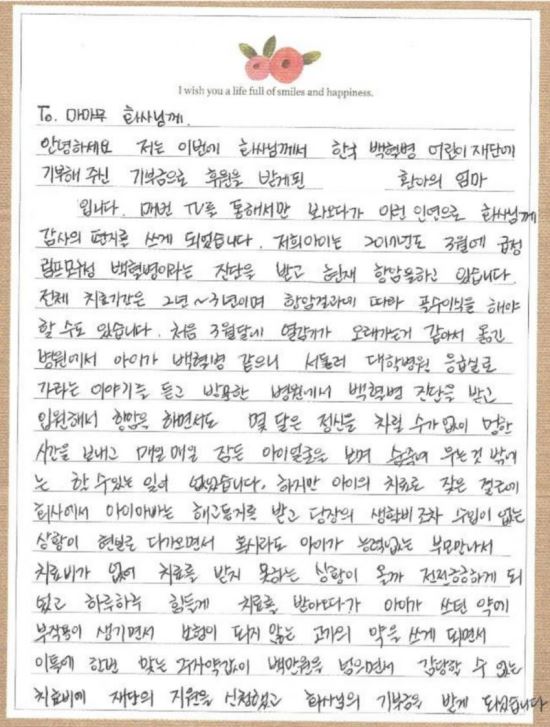 I wish you a life full of smiles and happiness.
To. 마마무 화사님께.
안녕하세요 저는 이번에 화사님께서 한국 백혈병 어린이 재단에
기부해 주신 기부금으로 후원을 받게된 환아의 엄마
입니다. 매번 TV를 통해서만 보아오다가 이런 인연으로 화사님께
감사의 편지를 쓰게 되었습니다. 저희아이는 2017년도 3월에 급성
림프모구성 백혈병이라는 진단을 받고 현재 항암을하고 있습니다.
전체 치료기간은 2년~3년이며 항암결과에 따라 골수이식을 해야
할 수도 있습니다. 처음 3월달에 열감기가 오래가는거 같아서 옮긴
병원에서 아이가 백혈병 같으니 서둘러 대학병원 응급실로
가라는 이야기를 듣고 방문한 병원에서 백혈병 진단을 받고
입원해서 항암을 하면서도 몇 달은 정신을 차릴 수가 없이 멍한
시간을 보내고 매일 매일 잠든 아이얼굴을 보며 숨죽여 우는것 밖에
는 할 수있는 일이 없었습니다. 하지만 아이의 치료로 잦은 결근에
회사에서 아이아빠는 해고통지를 받고 당장의 생활비조차 수입이 없는
상황이 현실로 다가오면서 혹시라도 아이가 능력없는 부모만나서
치료비가 없어 치료를 받지 못하는 상황이 올까 전전긍긍하게 되
었고 하루하루 힘들게 치료를 받아오다가 아이가 쓰던 약에
부작용이 생기면서 보험이 되지 않는 고가의 약을 쓰게 되면서
이틀에 한번 맞는 주사약값이 백만원을 넘으면서 감당할 수 없는
치료비에 재단의 지원을 신청했고 화사님의 기부금을 받게 되었습니다